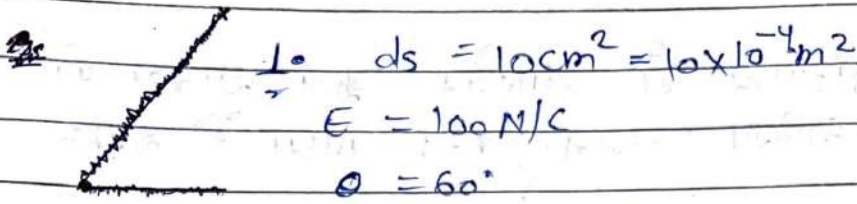 1. ds = 10cm² = 10x10⁻⁴m²
E = 100 N/C
θ = 60°